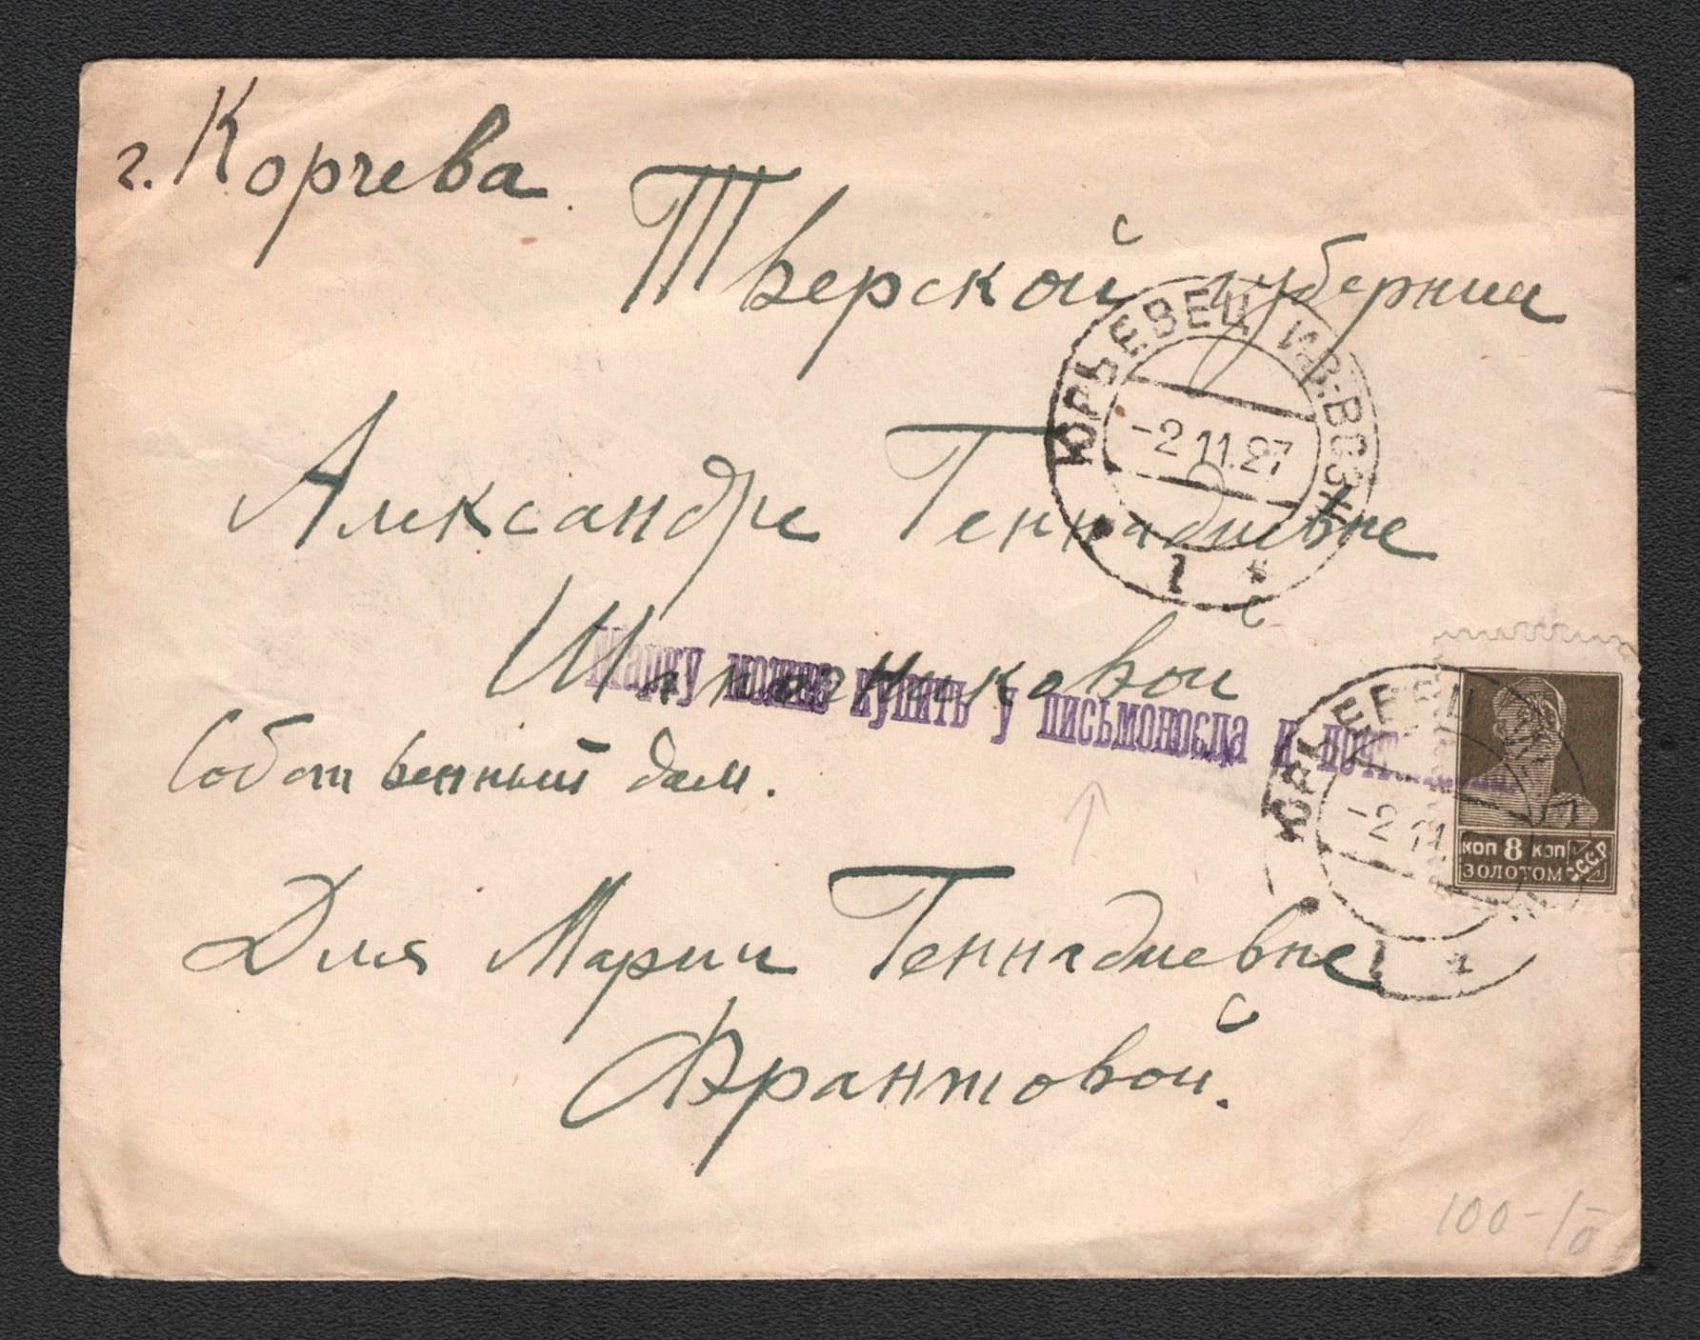 г. Корчева.
Тверской губернии
ЮРЬЕВЕЦ ИВ.ВОЗН
-2 11.27
1 *
Александре Геннадиевне
Собственный дом.
Марку можно купить у письмоносца и
ЮРЬЕВЕЦ
-2 11
1 *
КОП 8 КОП
ЗОЛОТОМ
СССР
Для Марии Геннадиевне
Франтовой.
100-/б